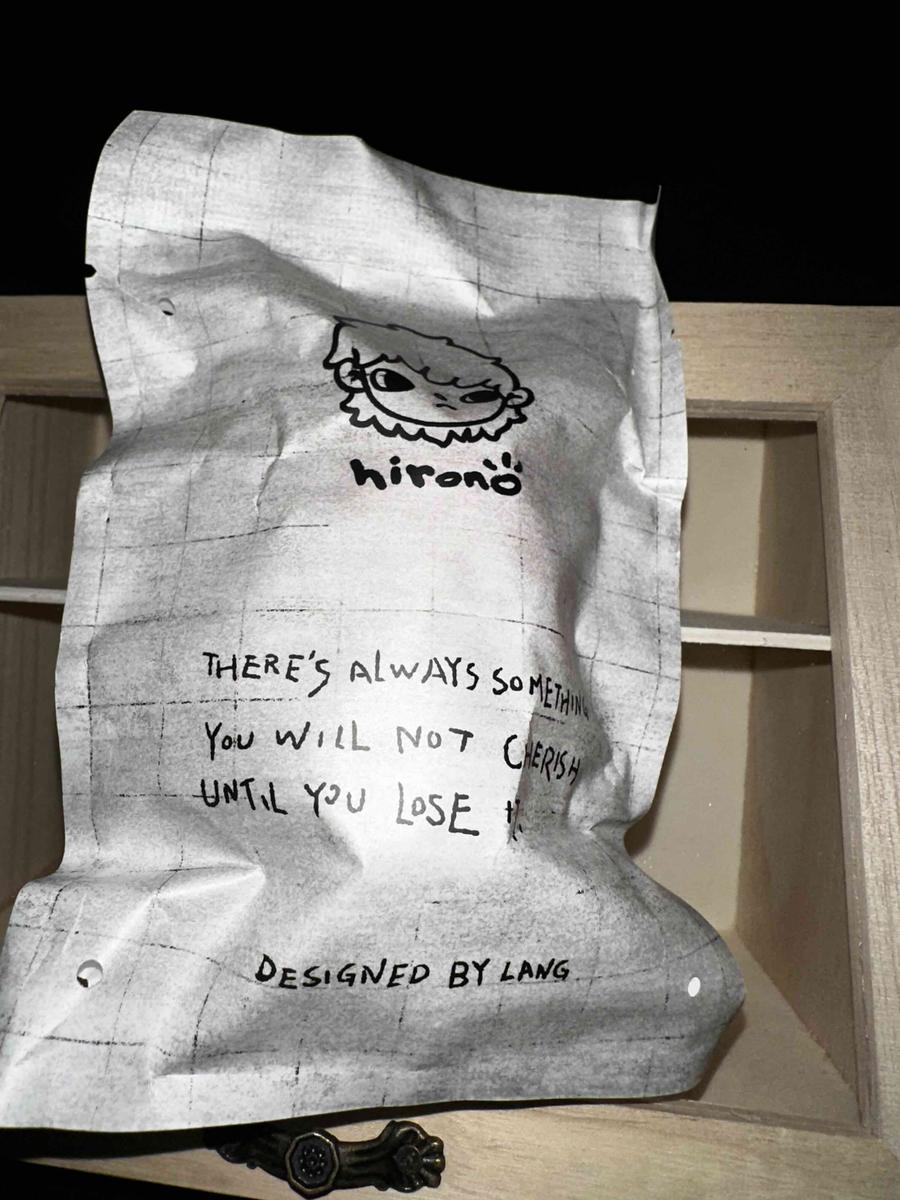 hirono
THERE'S ALWAYS SOMETHING
YOU WILL NOT CHERISH
UNTIL YOU LOSE
DESIGNED BY LANG